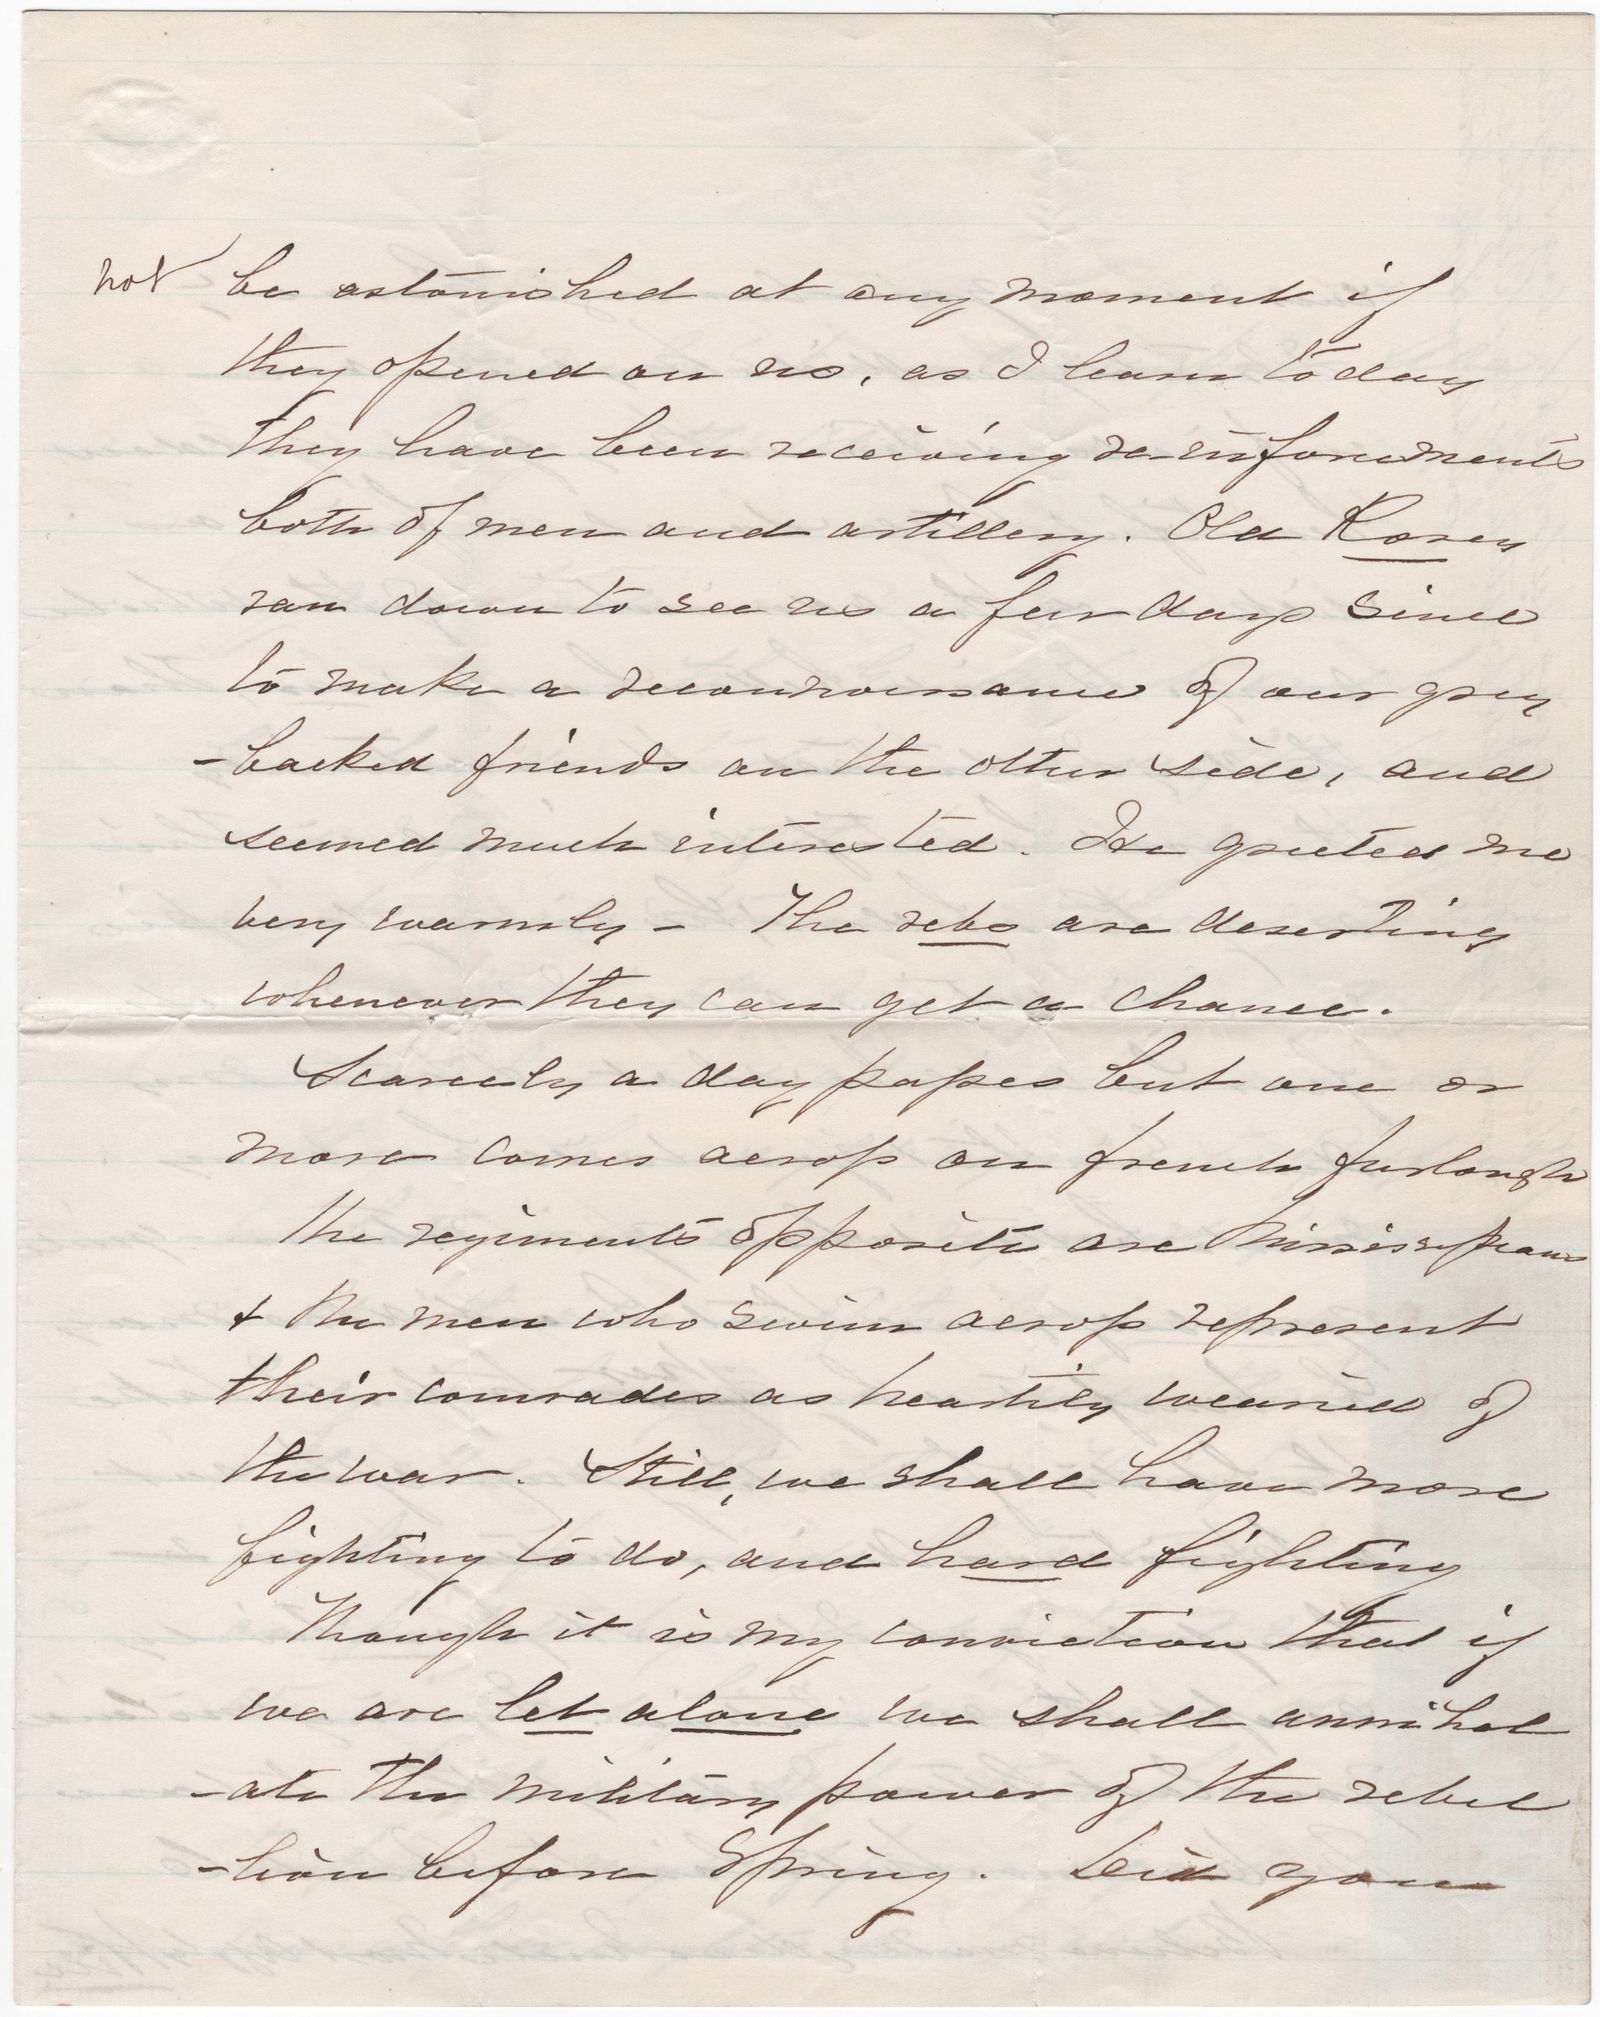 not be astonished at any moment if
they opened on us, as I learn to day
they have been receiving re-inforcements
both of men and artillery. Old Rosey
ran down to see us a few days since
to make a reconnoissance of our grey
-backed friends on the other side, and
seemed much interested. He greeted me
very warmly - The rebs are deserting
whenever they can get a chance.
Scarcely a day passes but one or
more comes across on french furlough
The regiments opposite are Mississipeans
& the men who swim across represent
their comrades as heartily wearied of
the war. Still, we shall have more
fighting to do, and hard fighting
Though it is my conviction that if
we are let alone we shall annihil
-ate the military power of the rebel
-lion before Spring. Did you